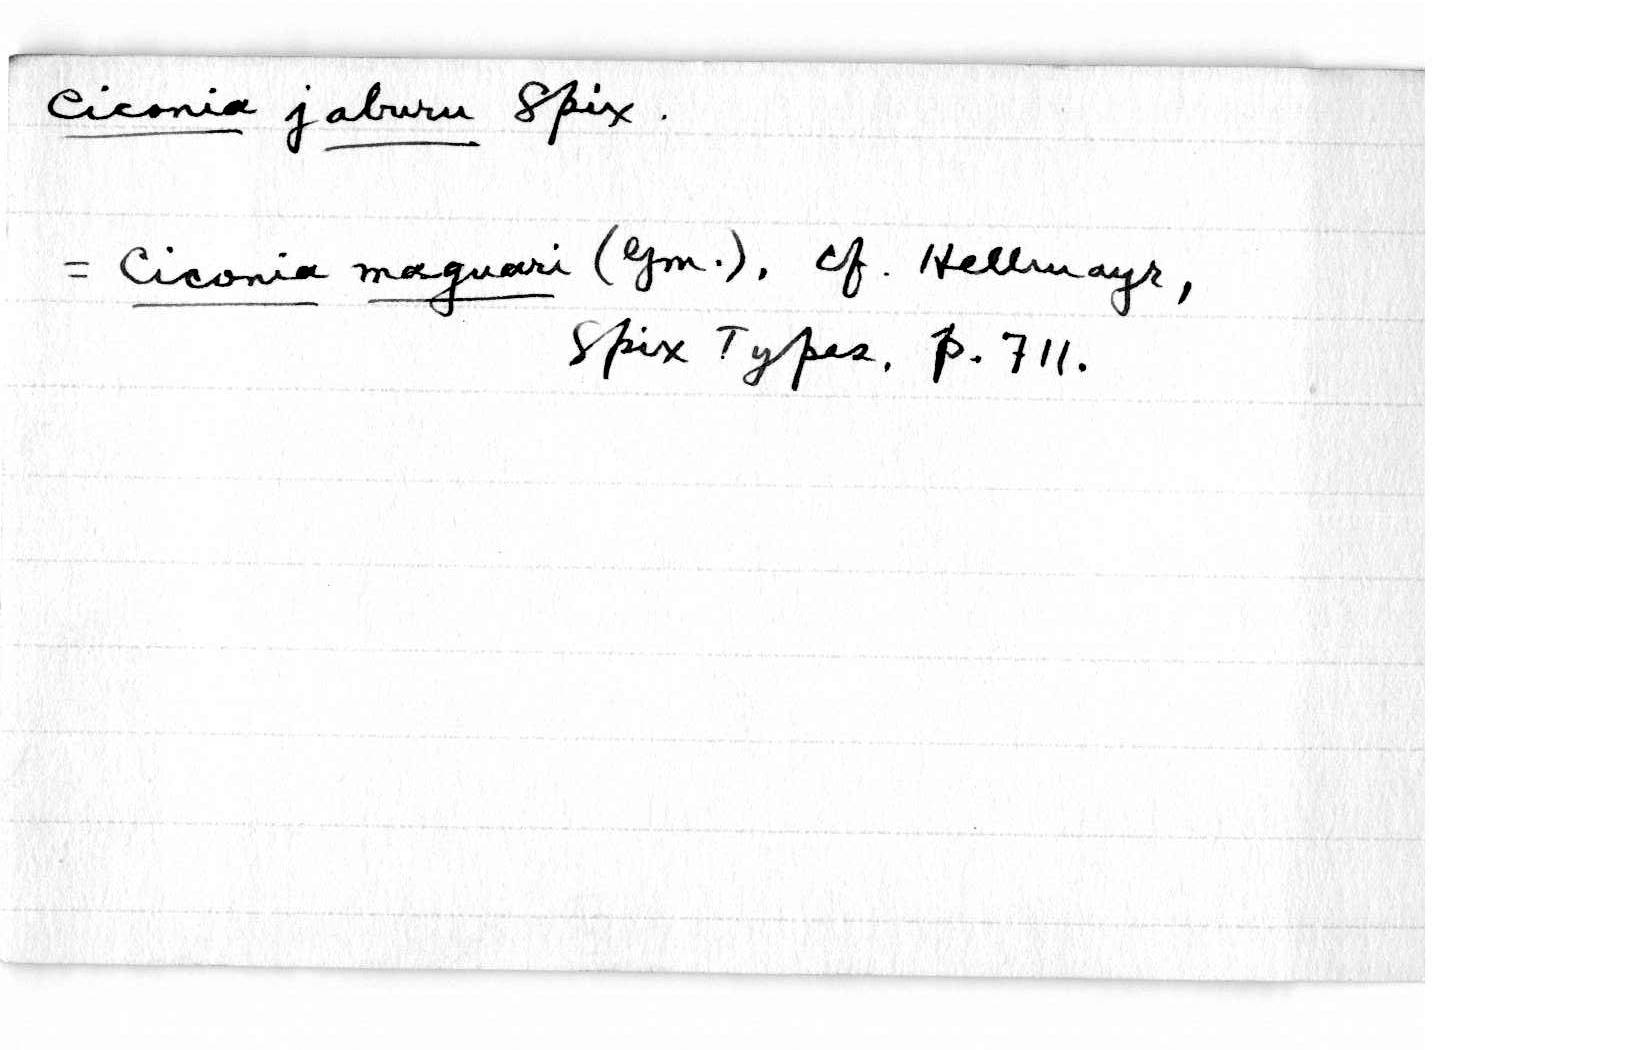 Ciconia jaburu Spix.
= Ciconia maguari (Gm.), cf. Hellmayr,
Spix Types, p. 711.